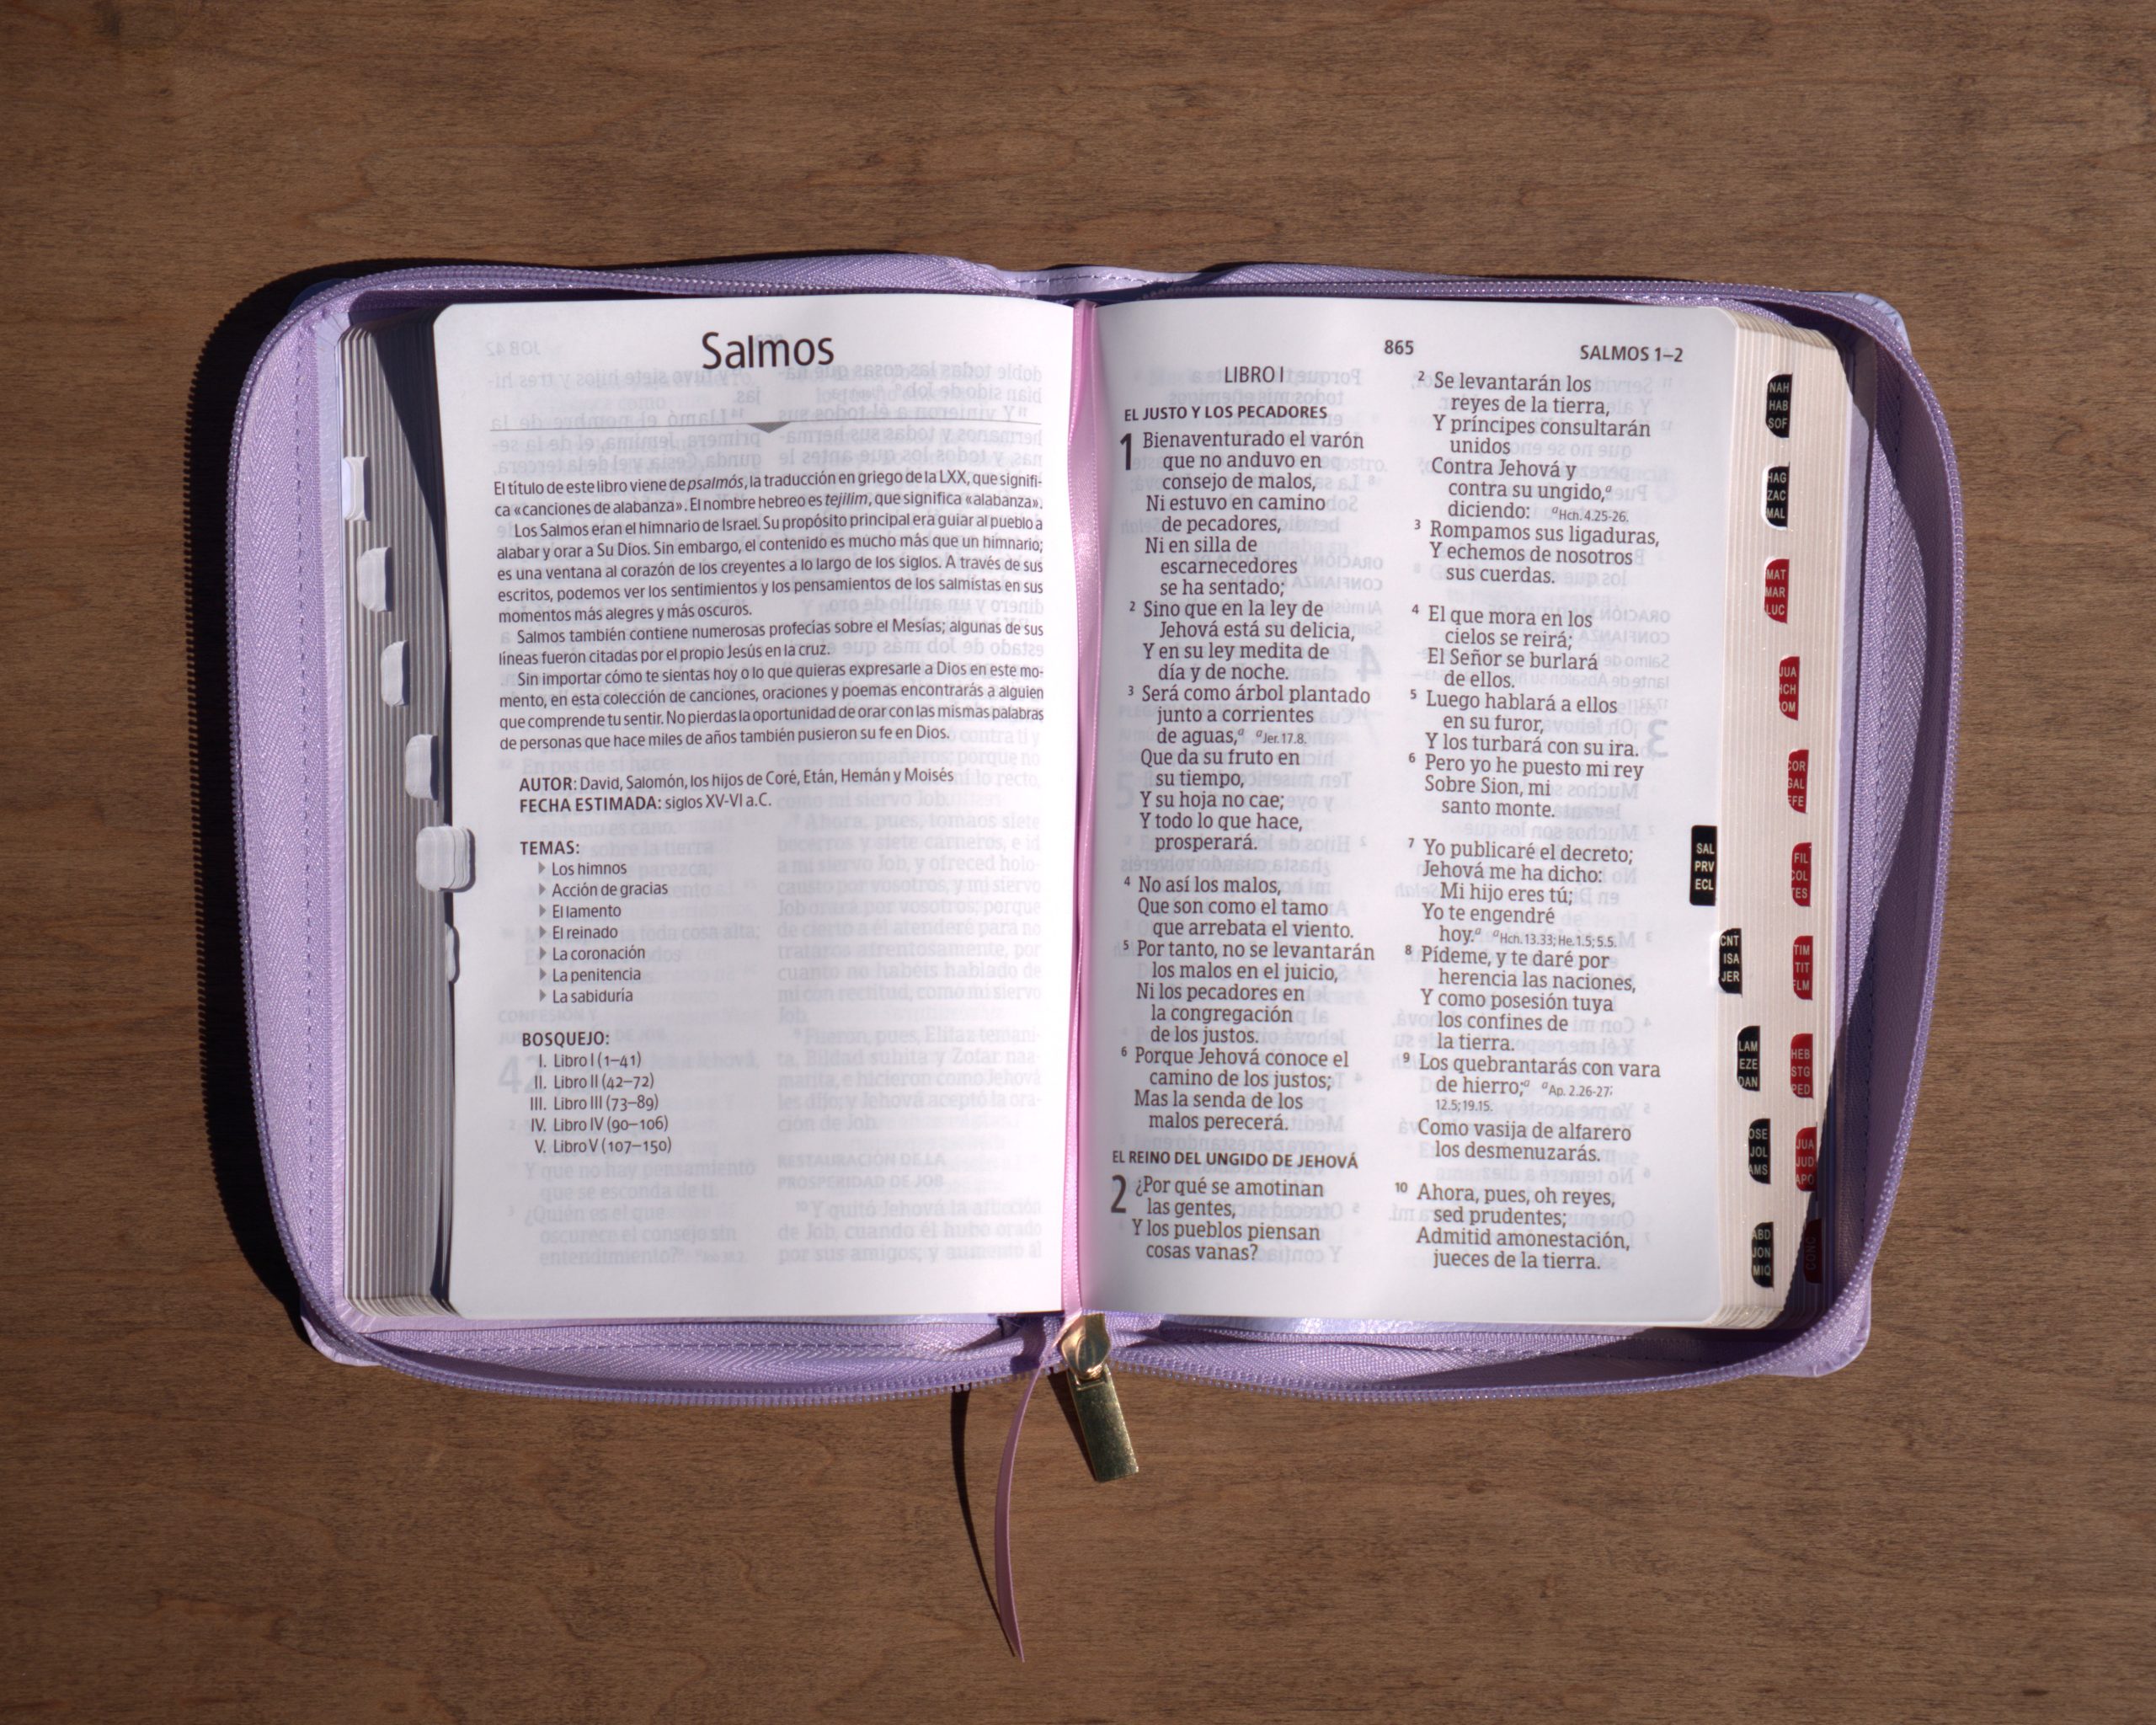 Salmos
El título de este libro viene de psalmós, la traducción en griego de la LXX, que signifi-
ca «canciones de alabanza». El nombre hebreo es tejilim, que significa «alabanza».
Los Salmos eran el himnario de Israel. Su propósito principal era guiar al pueblo a
alabar y orar a Su Dios. Sin embargo, el contenido es mucho más que un himnario;
es una ventana al corazón de los creyentes a lo largo de los siglos. A través de sus
escritos, podemos ver los sentimientos y los pensamientos de los salmistas en sus
momentos más alegres y más oscuros.
Salmos también contiene numerosas profecías sobre el Mesías; algunas de sus
líneas fueron citadas por el propio Jesús en la cruz.
Sin importar cómo te sientas hoy o lo que quieras expresarle a Dios en este mo-
mento, en esta colección de canciones, oraciones y poemas encontrarás a alguien
que comprende tu sentir. No pierdas la oportunidad de orar con las mismas palabras
de personas que hace miles de años también pusieron su fe en Dios.
AUTOR: David, Salomón, los hijos de Coré, Etán, Hemán y Moisés
FECHA ESTIMADA: siglos XV-VI a.C.
TEMAS:
Los himnos
Acción de gracias
El lamento
El reinado
La coronación
La penitencia
La sabiduría
BOSQUEJO:
I. Libro I (1–41)
II. Libro II (42–72)
III. Libro III (73–89)
IV. Libro IV (90–106)
V. Libro V (107–150)
865
SALMOS 1–2
LIBRO I
EL JUSTO Y LOS PECADORES
1 Bienaventurado el varón
que no anduvo en
consejo de malos,
Ni estuvo en camino
de pecadores,
Ni en silla de
escarnecedores
se ha sentado;
2 Sino que en la ley de
Jehová está su delicia,
Y en su ley medita de
día y de noche.
3 Será como árbol plantado
junto a corrientes
de aguas,a aJer. 17.8.
Que da su fruto en
su tiempo,
Y su hoja no cae;
Y todo lo que hace,
prosperará.
4 No así los malos,
Que son como el tamo
que arrebata el viento.
5 Por tanto, no se levantarán
los malos en el juicio,
Ni los pecadores en
la congregación
de los justos.
6 Porque Jehová conoce el
camino de los justos;
Mas la senda de los
malos perecerá.
EL REINO DEL UNGIDO DE JEHOVÁ
2 ¿Por qué se amotinan
las gentes,
Y los pueblos piensan
cosas vanas?
2 Se levantarán los
reyes de la tierra,
Y príncipes consultarán
unidos
Contra Jehová y
contra su ungido,a
diciendo: aHch. 4.25-26.
3 Rompamos sus ligaduras,
Y echemos de nosotros
sus cuerdas.
4 El que mora en los
cielos se reirá;
El Señor se burlará
de ellos.
5 Luego hablará a ellos
en su furor,
Y los turbará con su ira.
6 Pero yo he puesto mi rey
Sobre Sion, mi
santo monte.
7 Yo publicaré el decreto;
Jehová me ha dicho:
Mi hijo eres tú;
Yo te engendré
hoy.a aHch. 13.33; He. 1.5; 5.5.
8 Pídeme, y te daré por
herencia las naciones,
Y como posesión tuya
los confines de
la tierra.
9 Los quebrantarás con vara
de hierro;a aAp. 2.26-27;
12.5; 19.15.
Como vasija de alfarero
los desmenuzarás.
10 Ahora, pues, oh reyes,
sed prudentes;
Admitid amonestación,
jueces de la tierra.
SAL
PRV
ECL
CNT
ISA
JER
LAM
EZE
DAN
OSE
JOL
AMS
ABD
JON
MIQ
NAH
HAB
SOF
HAG
ZAC
MAL
MAT
MAR
LUC
JUA
HCH
ROM
COR
GAL
EFE
FIL
COL
TES
TIM
TIT
FLM
HEB
STG
PED
JUA
JUD
APO
CONC